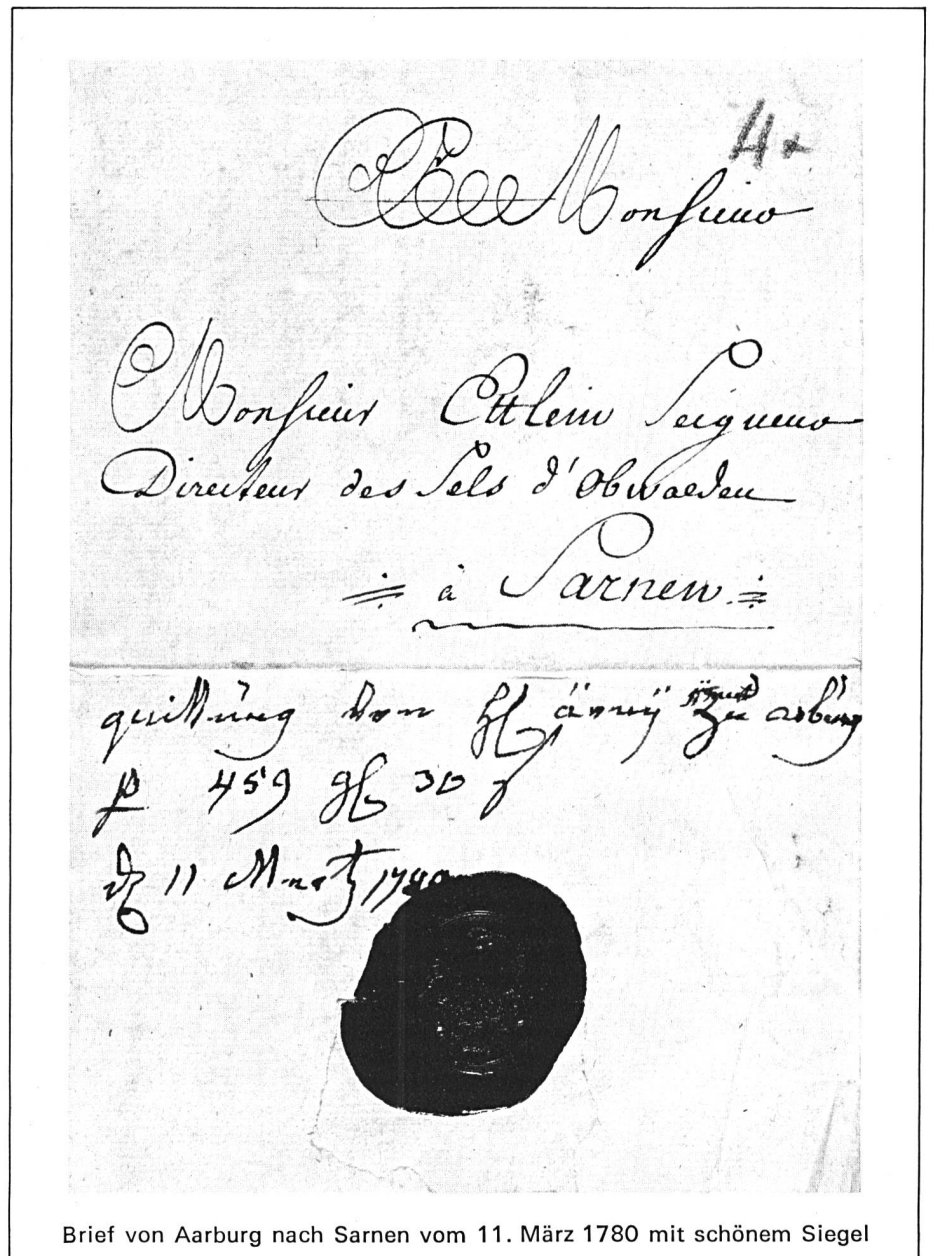 4
Monsieur
Monsieur Ettlein Seigneur
Directeur des Sels d'Obwalden
à Sarnen
quittung von H änÿ zu arburg
p 459 gl 30
11 Martz 1780
Brief von Aarburg nach Sarnen vom 11. März 1780 mit schönem Siegel